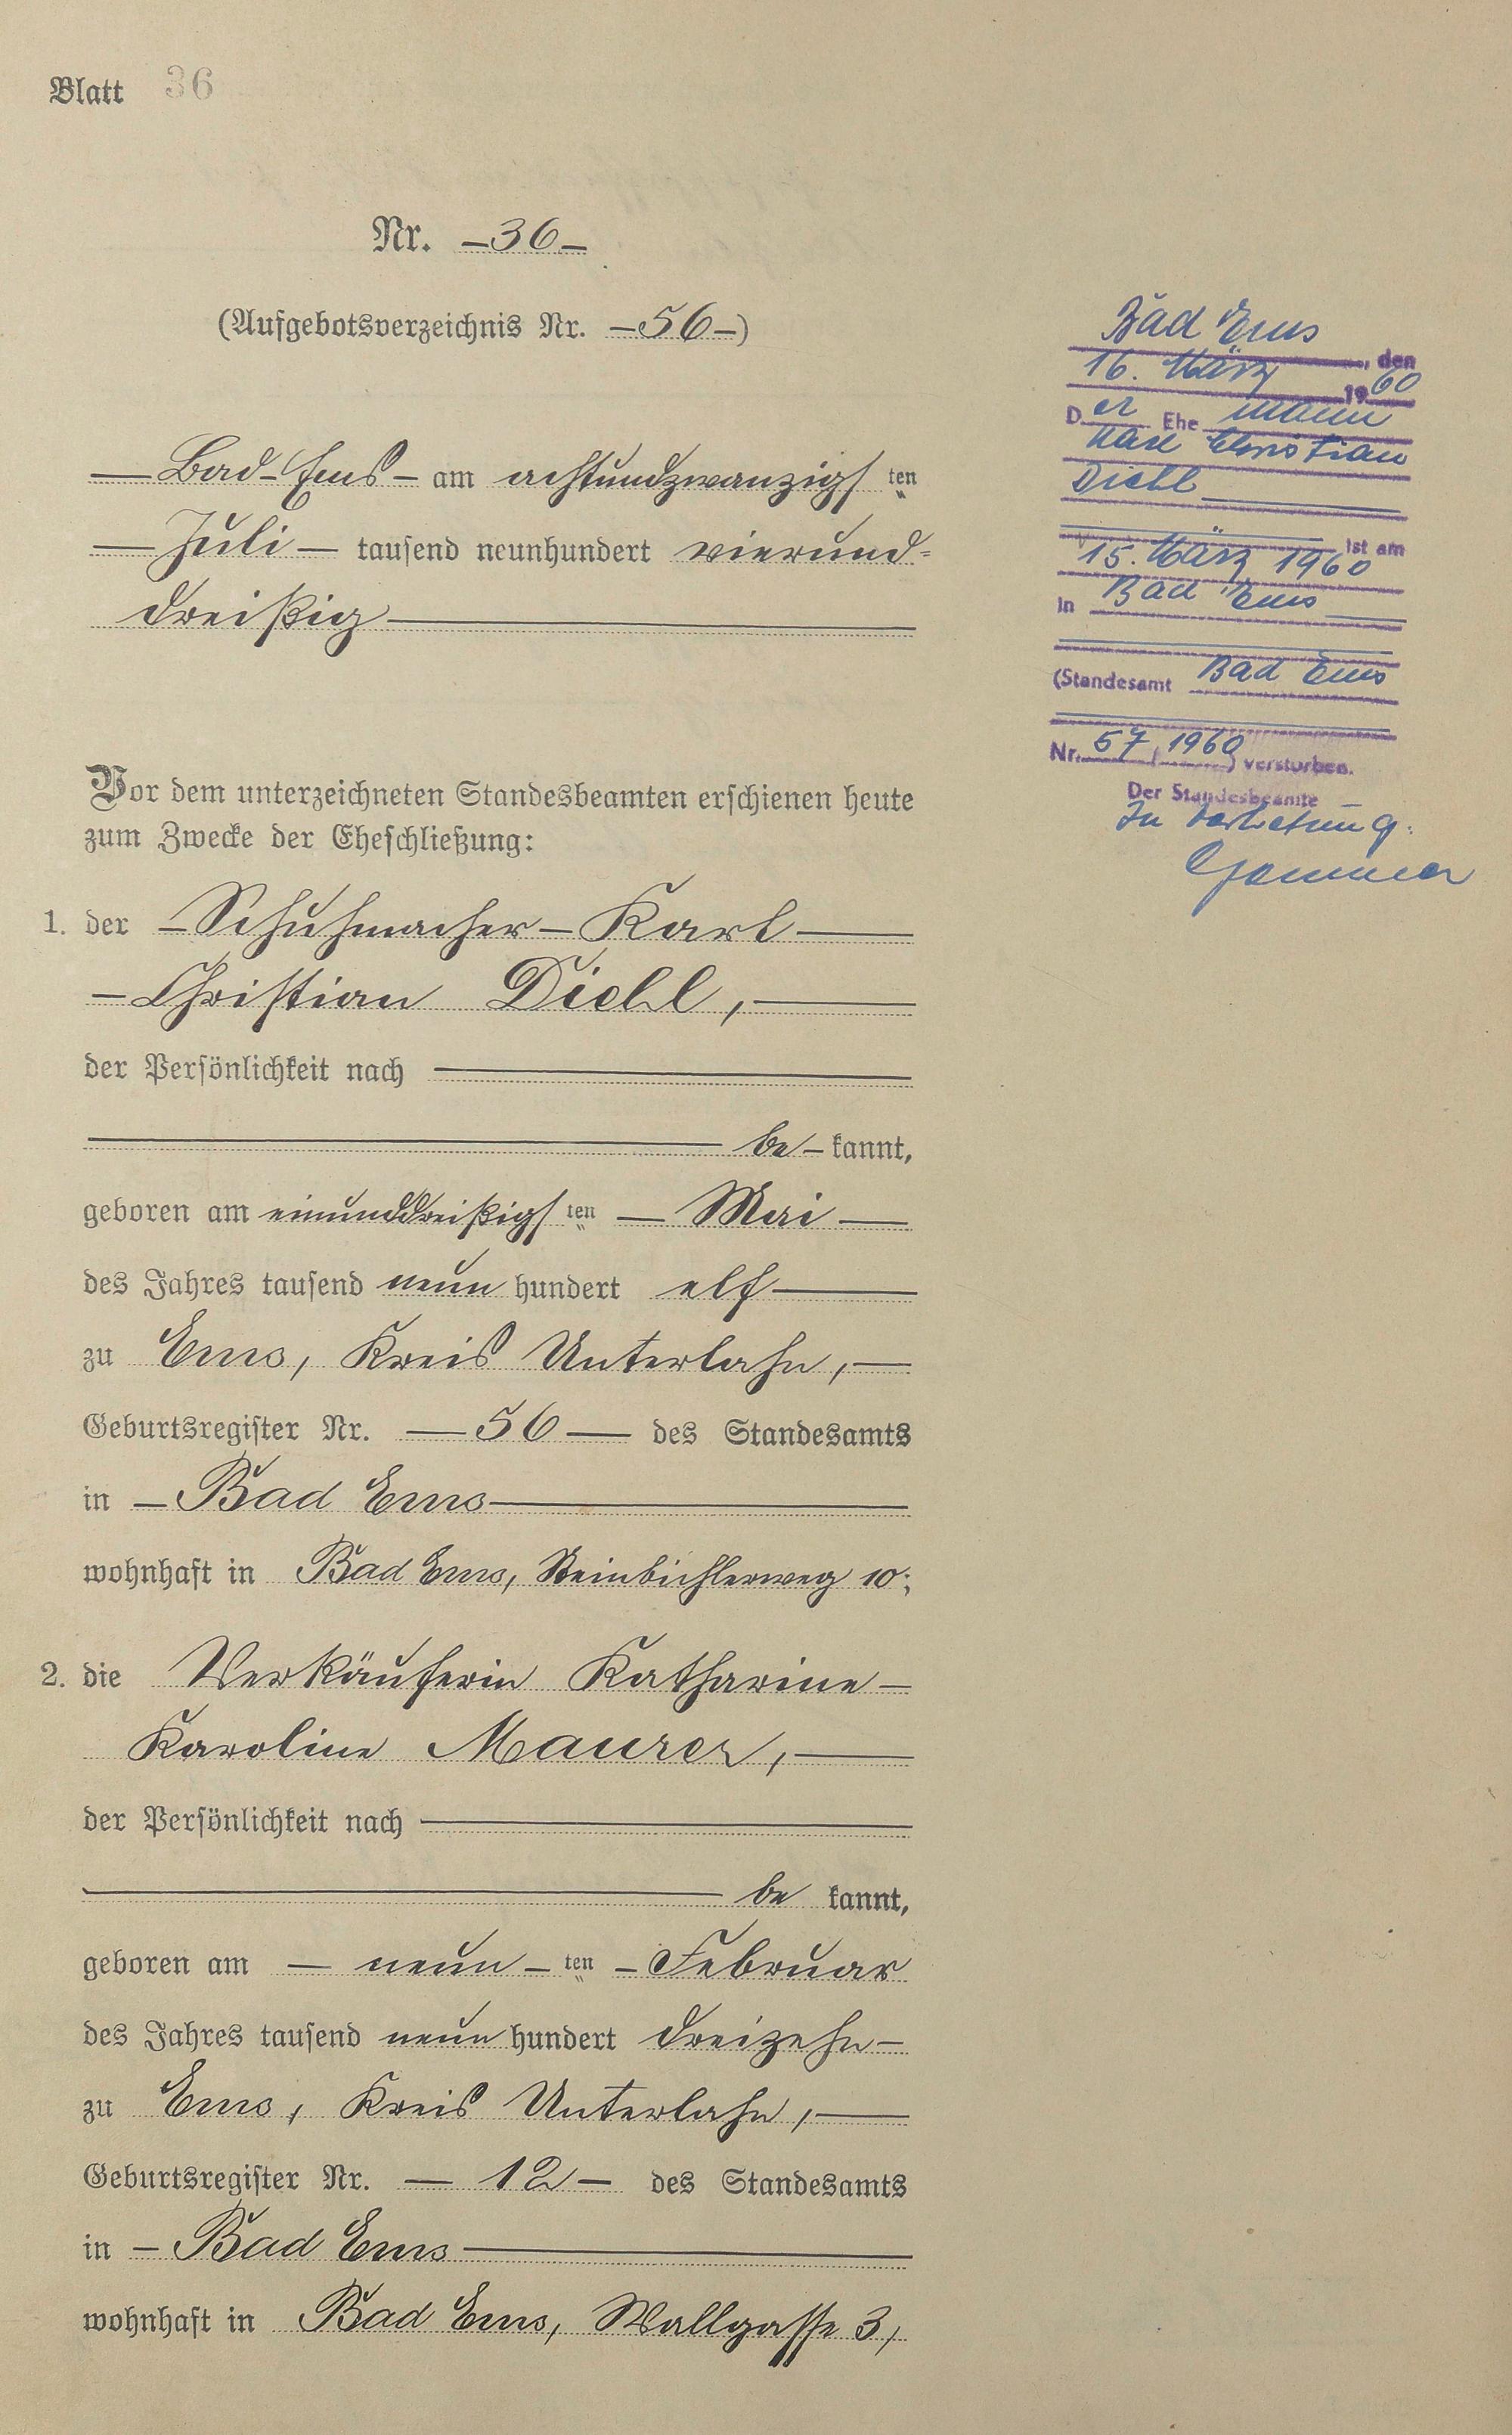 Blatt 36
Nr. —36—
(Aufgebotsverzeichnis Nr. —56—)
— Bad-Ems — am achtundzwanzigsten
— Juli — tausend neunhundert vierund-
dreißig —
Vor dem unterzeichneten Standesbeamten erschienen heute
zum Zwecke der Eheschließung:
1. der — Schuhmacher — Karl —
— Christian Diehl, —
der Persönlichkeit nach —
— be — kannt,
geboren am einunddreißigsten — Mai —
des Jahres tausend neun hundert elf —
zu Ems, Kreis Unterlahn, —
Geburtsregister Nr. — 56 — des Standesamts
in — Bad Ems —
wohnhaft in Bad Ems, Steinbichlerweg 10;
2. die Verkäuferin Katharine —
Karoline Maurer, —
der Persönlichkeit nach —
— be kannt,
geboren am — neun — ten — Februar
des Jahres tausend neun hundert dreizehn —
zu Ems, Kreis Unterlahn, —
Geburtsregister Nr. — 12 — des Standesamts
in — Bad Ems —
wohnhaft in Bad Ems, Wallgasse 3,
Bad Ems, den
16. März 1960
Der Ehemann
Karl Christian
Diehl
ist am
15. März 1960
in Bad Ems
(Standesamt Bad Ems
Nr. 57/1960) verstorben.
Der Standesbeamte
In Vertretung: